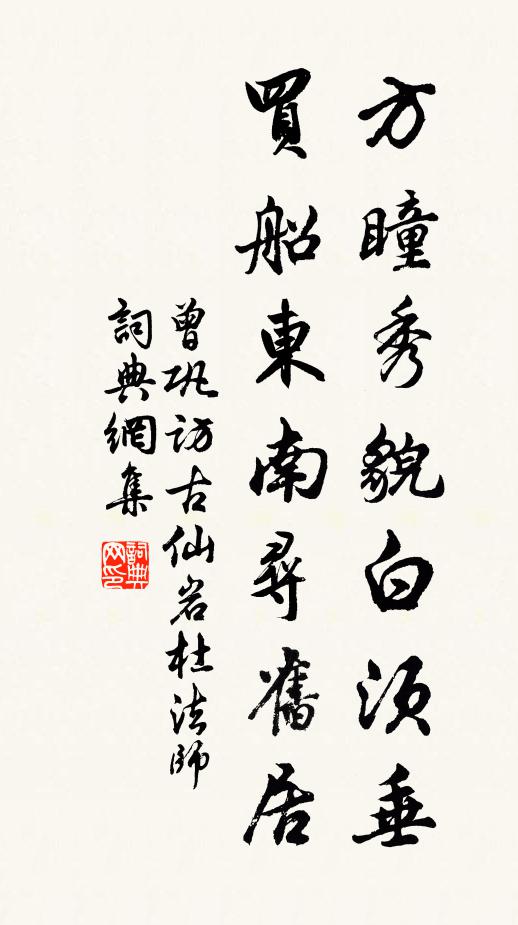 方瞳秀貌白須垂
買船東南尋舊居
曾巩訪古仙岩杜法師
詞典網集
詞典網印